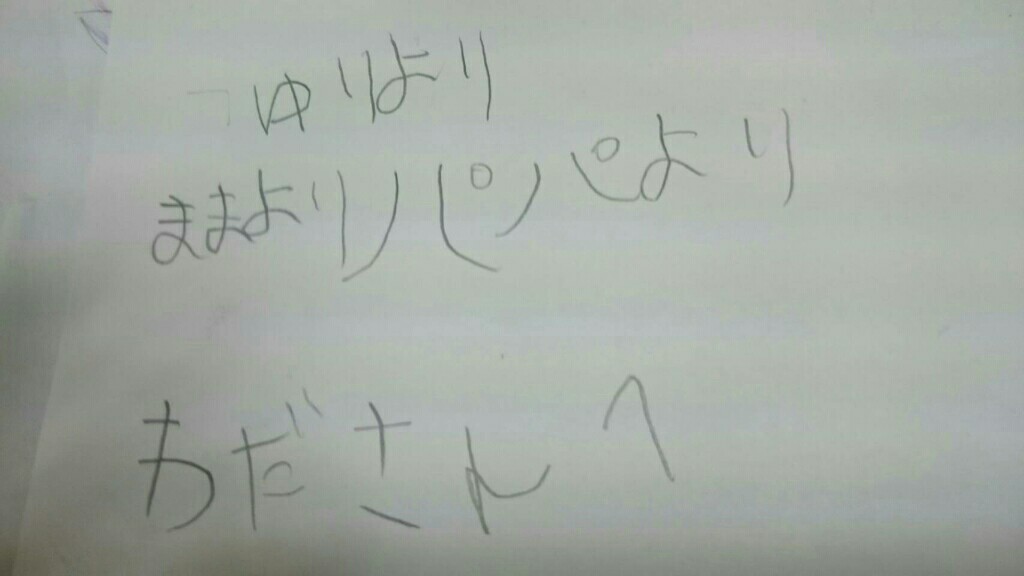 ゆりより
ままよりパパより
わださんへ